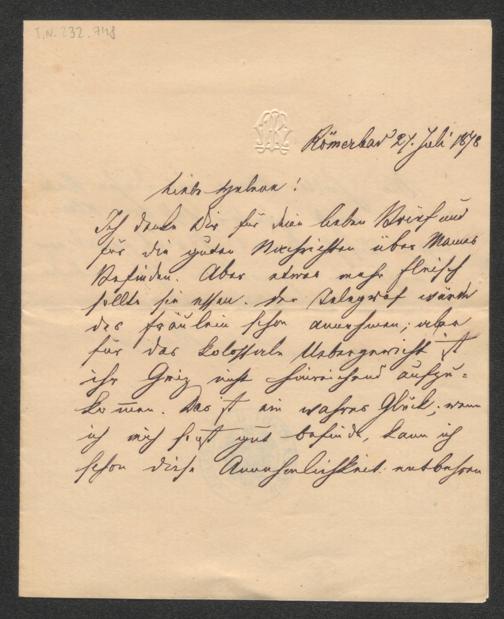 I.N. 232.748
Römerbad 27. Juli 1878
Liebe Helene!
Ich danke Dir für dein lieben Brief und
für die guten Nachrichten über Mamas
Befinden. Aber etwas mehr Fleisch
sollte sie essen. Der Telegraf würde
das Fräulein schon annehmen; aber
für das kolossale Uebergewicht ist
ihr Geiz nicht hinreichend aufzu-
kommen. Das ist ein wahres Glück; wenn
ich mich sonst gut befinde, kann ich
schon diese Annehmlichkeit entbehren